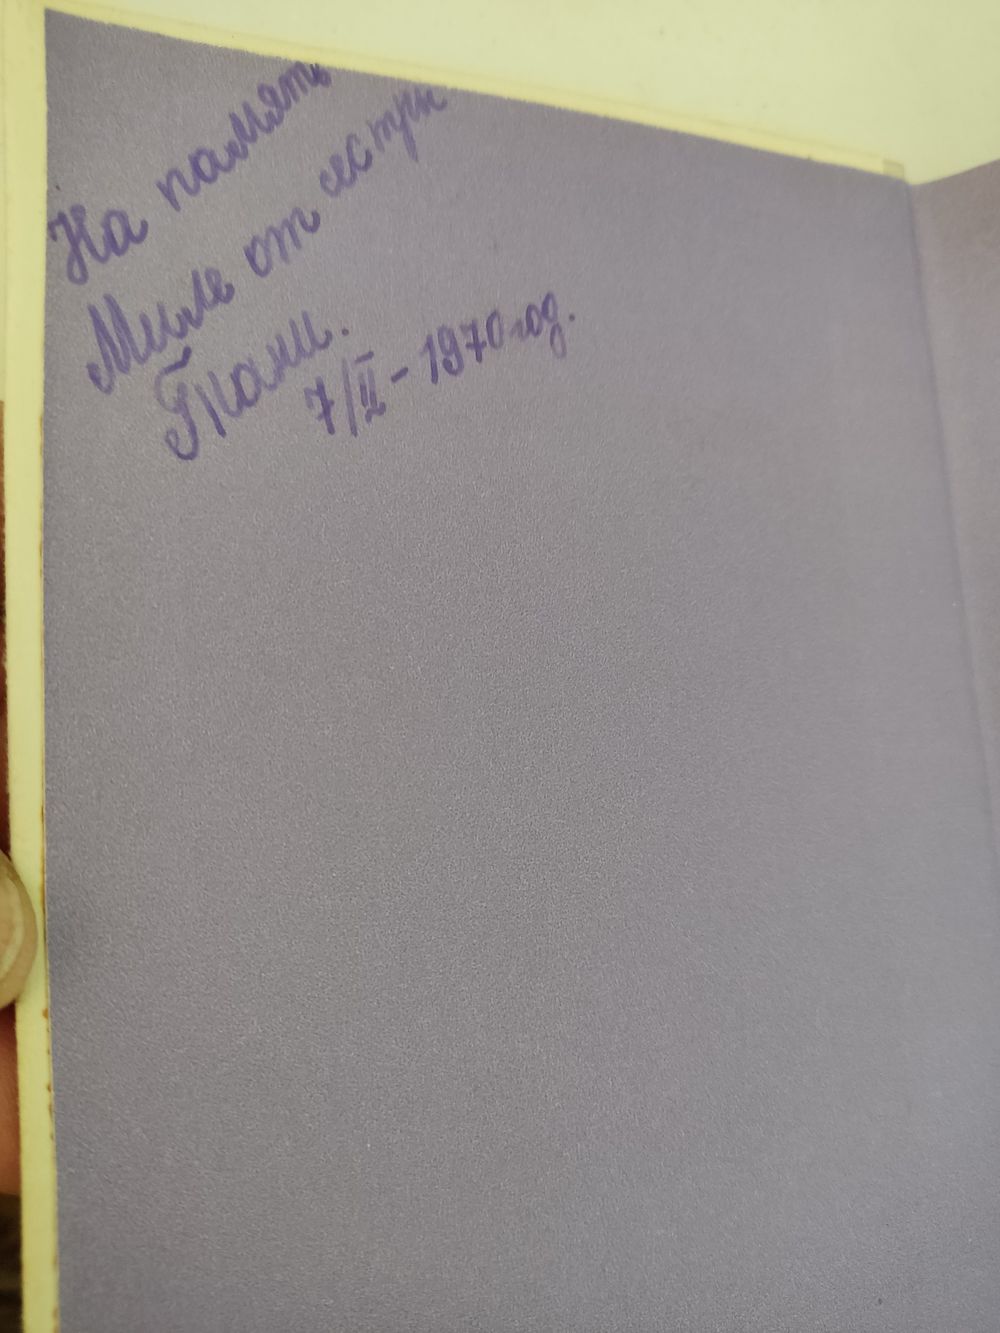 На память
Миле от сестры
Тани.
7/II - 1970 год.